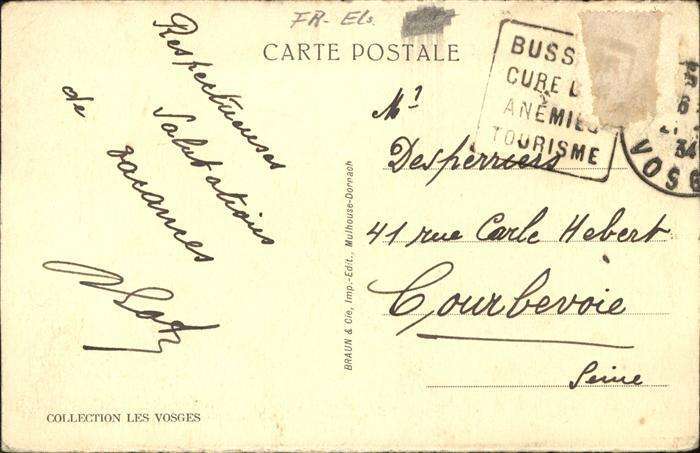 FR- Els.
CARTE POSTALE
Respectueuses
Salutations
de vacances
BUSS
CURE D
ANÉMIES
TOURISME
34
VOSG
Mr
Desperriers
41 rue Carle Hebert
Courbevoie
Seine
BRAUN & Cie, Imp.-Edit., Mulhouse-Dornach
COLLECTION LES VOSGES